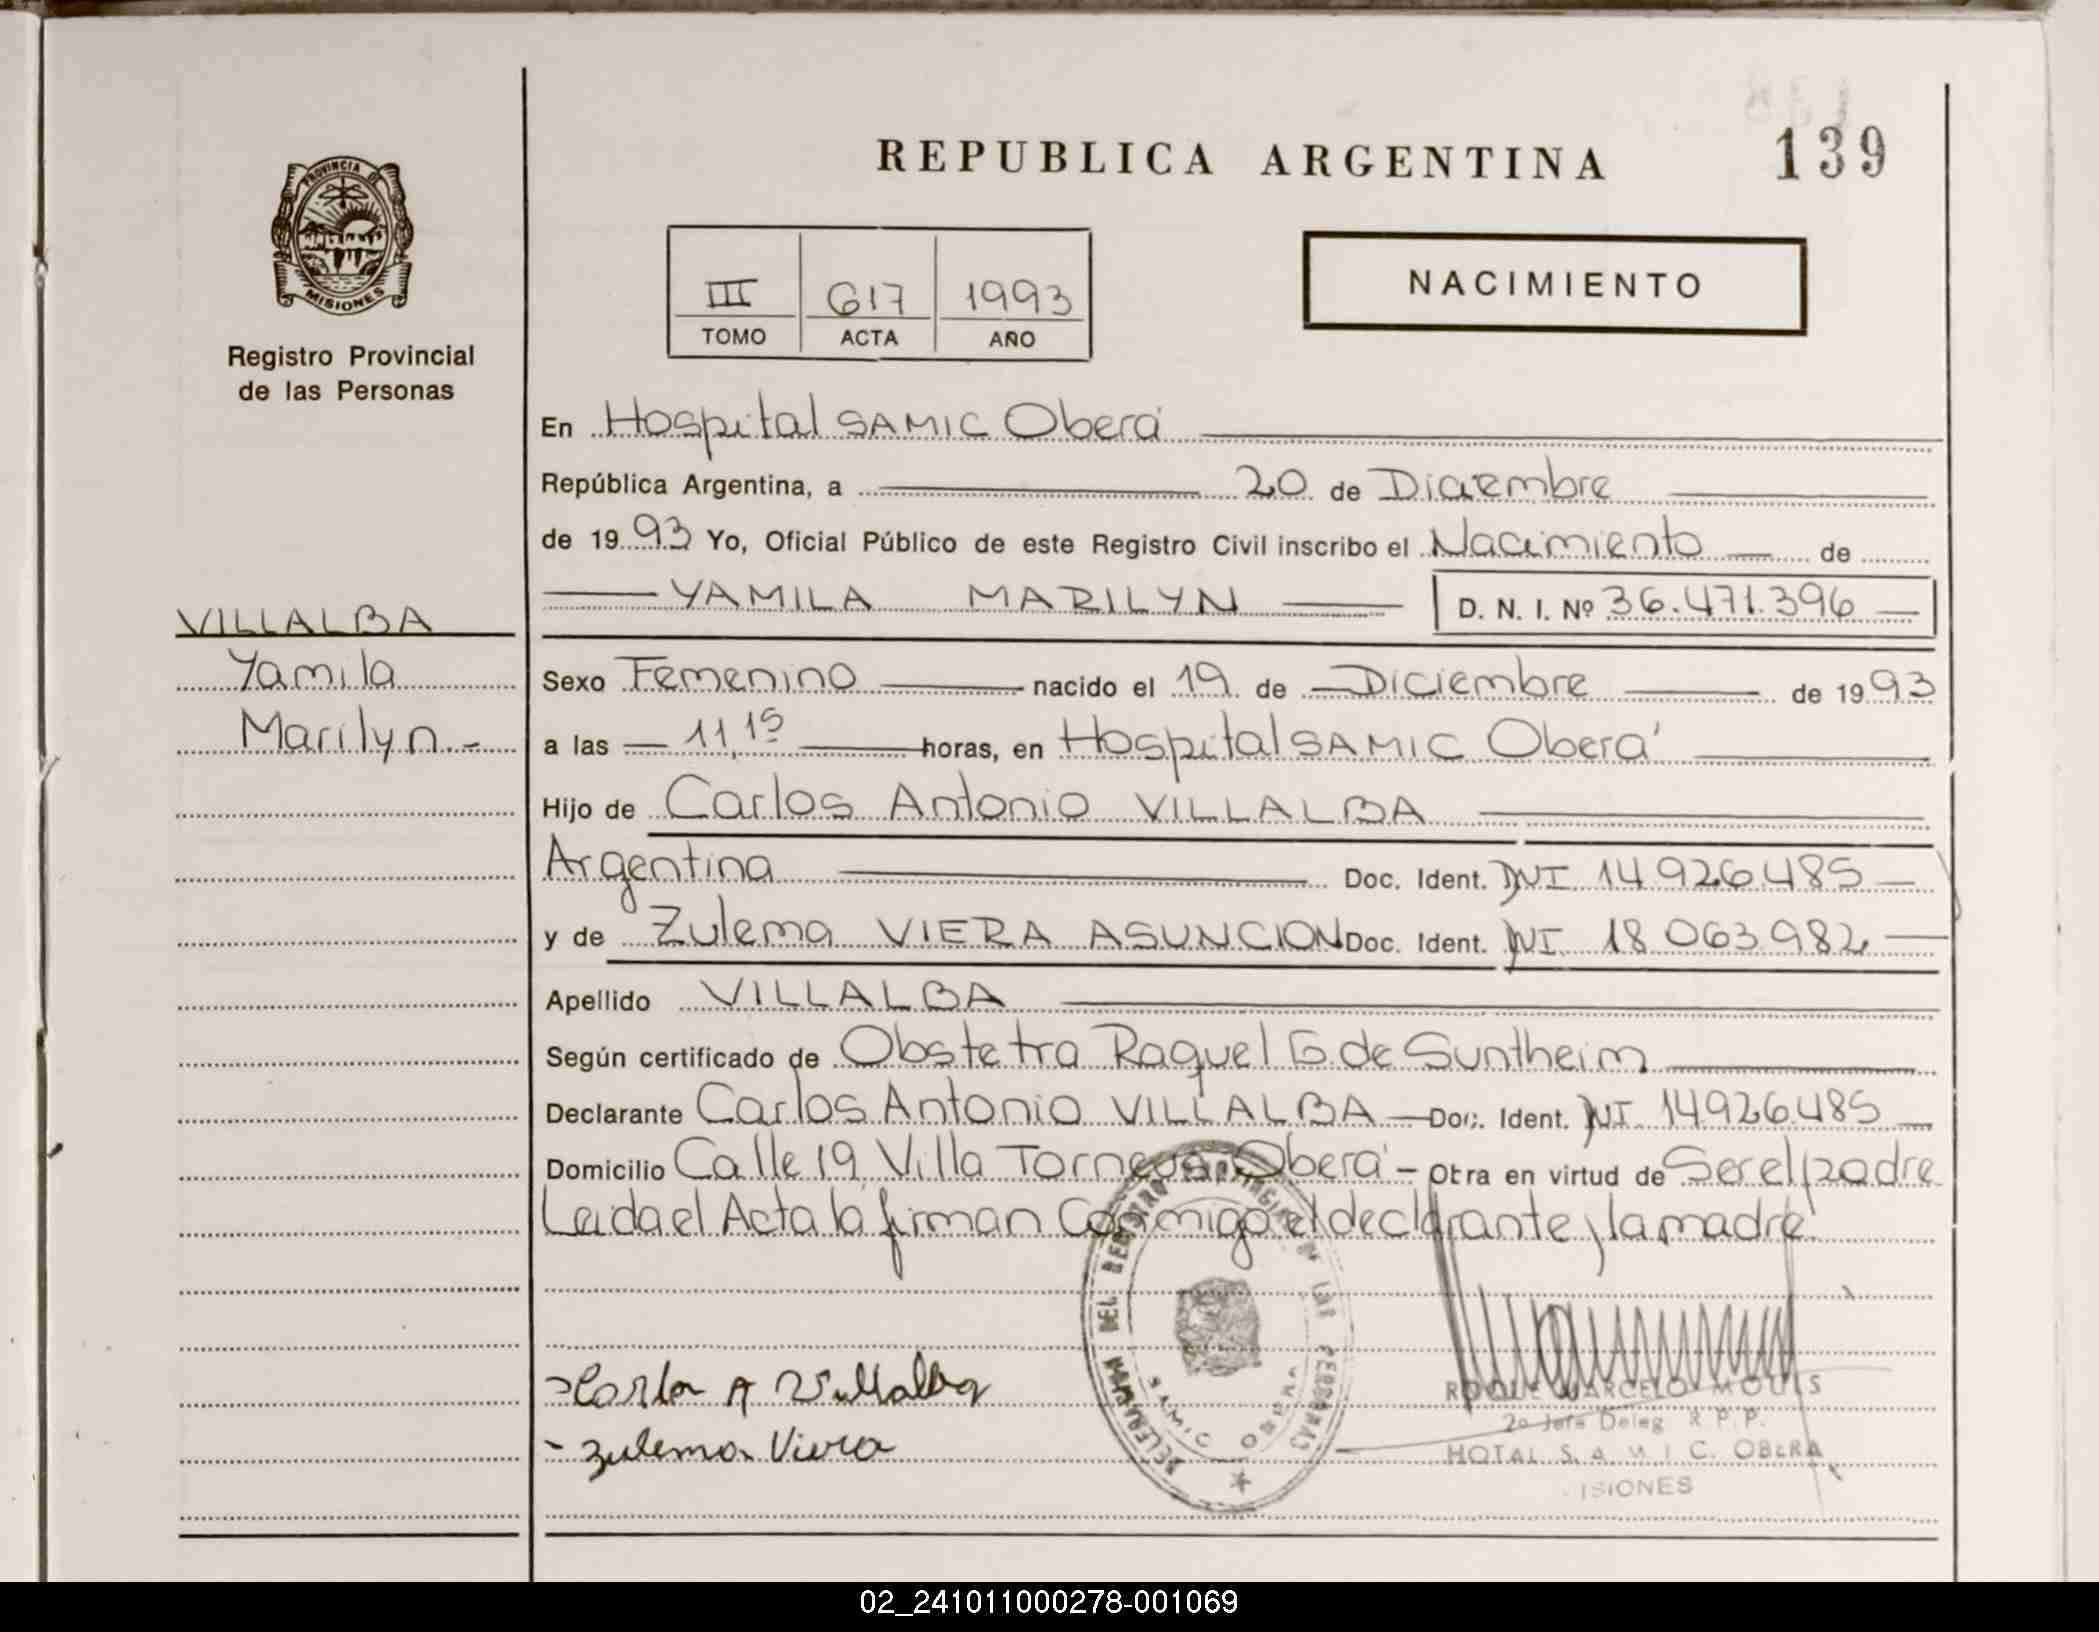 REPUBLICA ARGENTINA
139
PROVINCIA DE
MISIONES
Registro Provincial
de las Personas
III
617
1993
TOMO
ACTA
AÑO
NACIMIENTO
VILLALBA
Yamila
Marilyn.-
En Hospital SAMIC Oberá
República Argentina, a 20 de Diciembre
de 1993 Yo, Oficial Público de este Registro Civil inscribo el Nacimiento de
YAMILA MARILYN D. N. I. Nº 36.471.396
Sexo Femenino nacido el 19 de Diciembre de 1993
a las 11,15 horas, en Hospital SAMIC Oberá
Hijo de Carlos Antonio VILLALBA
Argentina Doc. Ident. DNI 14.926.485
y de Zulema VIERA ASUNCION Doc. Ident. DNI 18.063.982
Apellido VILLALBA
Según certificado de Obstetra Raquel G. de Suntheim
Declarante Carlos Antonio VILLALBA Doc. Ident. DNI 14926.485
Domicilio Calle 19 Villa Oberá - Obra en virtud de Ser el padre
Leida el Acta la firman Conmigo el declarante y la madre
A Villalba
- Zulema Viera
DELEGACION DEL REGISTRO PROVINCIAL DE LAS PERSONAS
SAMIC OBERA
ROQUE MARCELO MOUIS
2º Jefe Deleg R. P. P.
HOTAL S. A. M. I. C. OBERA
ISIONES
02_241011000278-001069